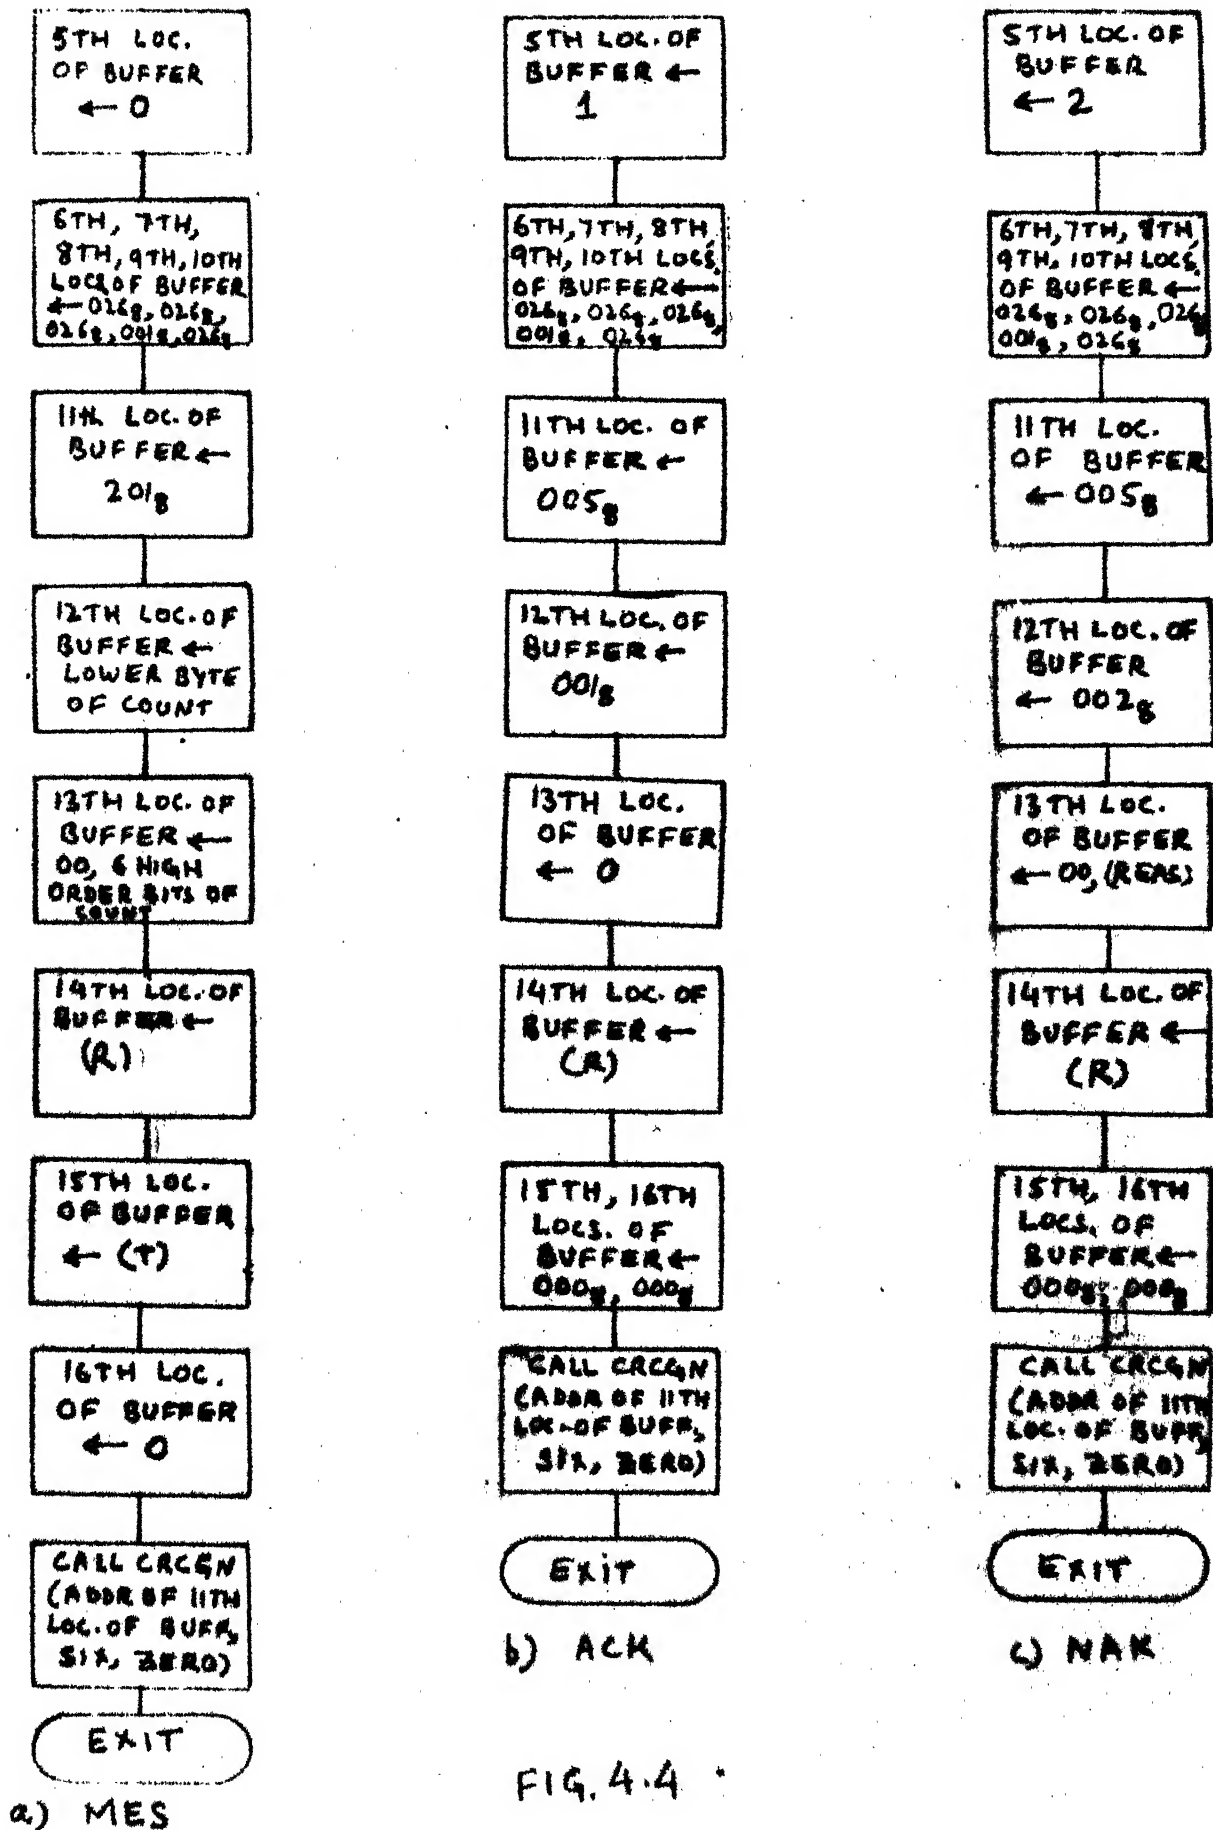 5TH LOC.
OF BUFFER
← 0
6TH, 7TH,
8TH, 9TH, 10TH
LOCS. OF BUFFER
← 026₈, 026₈,
026₈, 001₈, 026₈
11th LOC. OF
BUFFER ←
201₈
12TH LOC. OF
BUFFER ←
LOWER BYTE
OF COUNT
13TH LOC. OF
BUFFER ←
00, 6 HIGH
ORDER BITS OF
COUNT
14TH LOC. OF
BUFFER ←
(R)
15TH LOC.
OF BUFFER
← (T)
16TH LOC.
OF BUFFER
← 0
CALL CRCGN
(ADDR OF 11TH
LOC. OF BUFF,
SIX, ZERO)
EXIT
a) MES
5TH LOC. OF
BUFFER ←
1
6TH, 7TH, 8TH,
9TH, 10TH LOCS.
OF BUFFER ←
026₈, 026₈, 026₈,
001₈, 026₈
11TH LOC. OF
BUFFER ←
005₈
12TH LOC. OF
BUFFER ←
001₈
13TH LOC.
OF BUFFER
← 0
14TH LOC. OF
BUFFER ←
(R)
15TH, 16TH
LOCS. OF
BUFFER ←
000₈, 000₈
CALL CRCGN
(ADDR OF 11TH
LOC. OF BUFF,
SIX, ZERO)
EXIT
b) ACK
5TH LOC. OF
BUFFER
← 2
6TH, 7TH, 8TH,
9TH, 10TH LOCS.
OF BUFFER ←
026₈, 026₈, 026₈
001₈, 026₈
11TH LOC.
OF BUFFER
← 005₈
12TH LOC. OF
BUFFER
← 002₈
13TH LOC.
OF BUFFER
← 00, (REAS)
14TH LOC. OF
BUFFER ←
(R)
15TH, 16TH
LOCS. OF
BUFFER ←
000₈, 000₈
CALL CRCGN
(ADDR OF 11TH
LOC. OF BUFF,
SIX, ZERO)
EXIT
c) NAK
FIG. 4.4